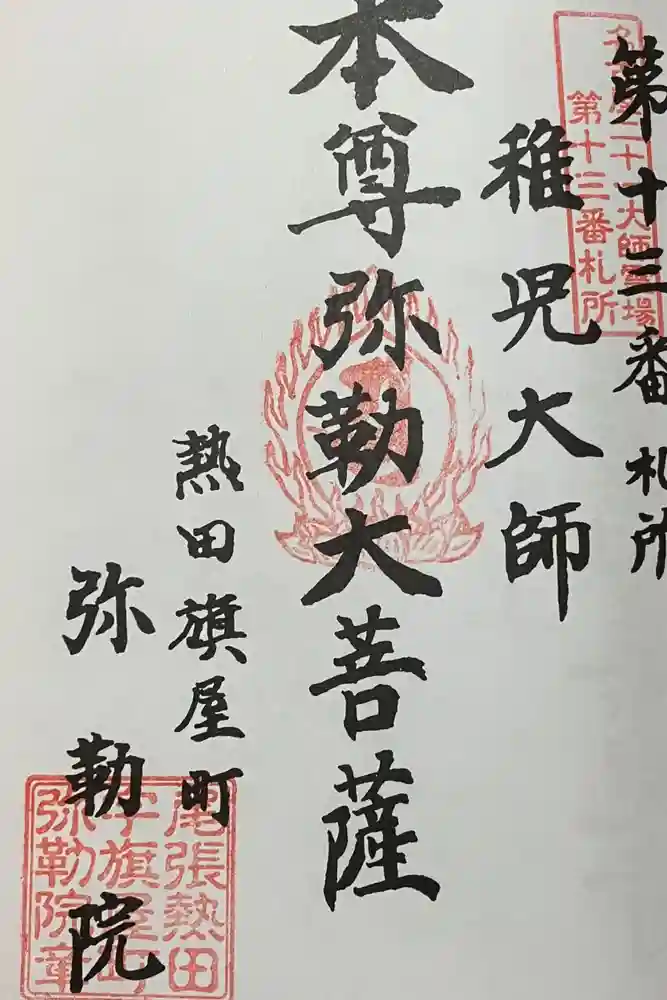 第十三番札所
稚児大師
本尊弥勒大菩薩
熱田旗屋町
弥勒院
名古屋二十一大師霊場
第十三番札所
尾張熱田
字旗屋町
弥勒院章